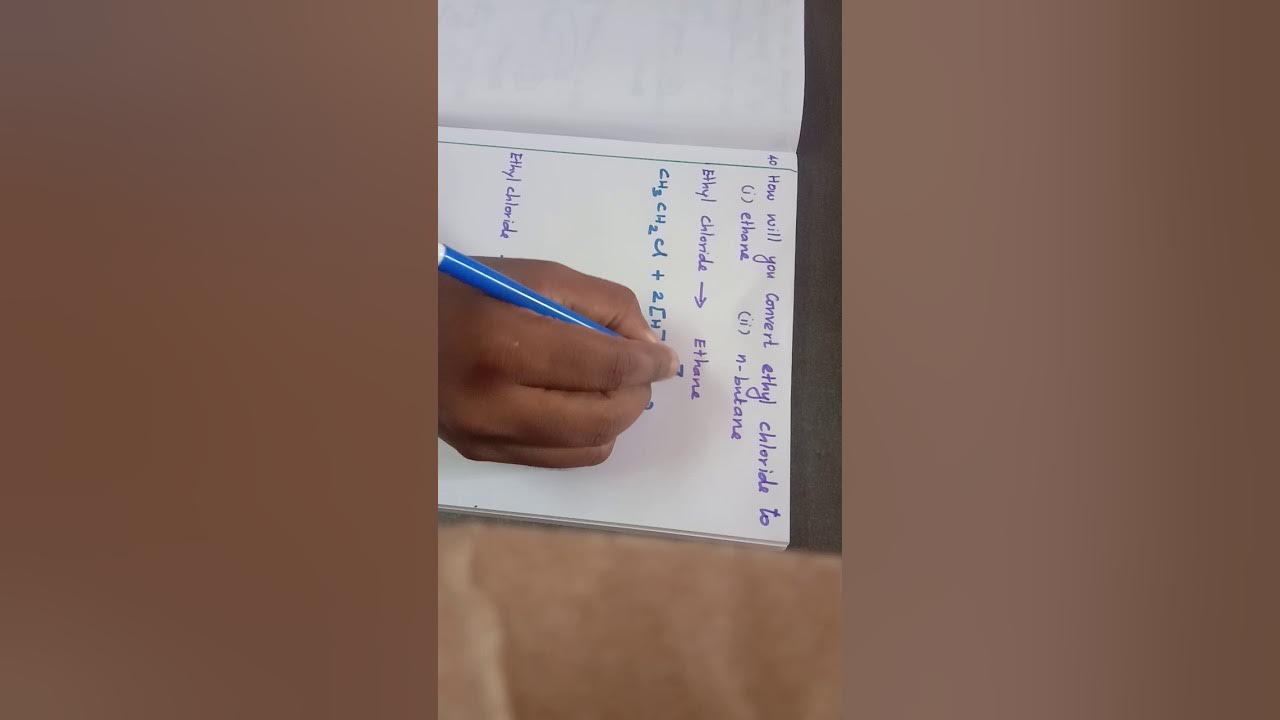 40 How will you convert ethyl chloride to
(i) ethane (ii) n-butane
Ethyl chloride → Ethane
CH₃CH₂Cl + 2[H
Ethyl chloride